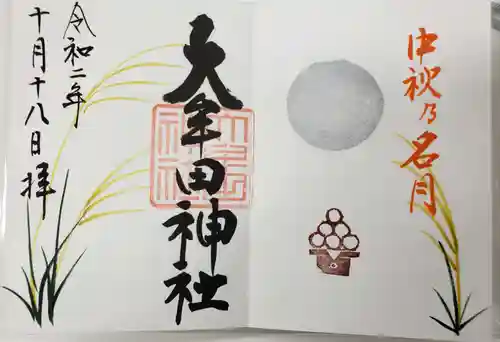 中秋乃名月
大牟田神社
令和二年
十月十八日 拝